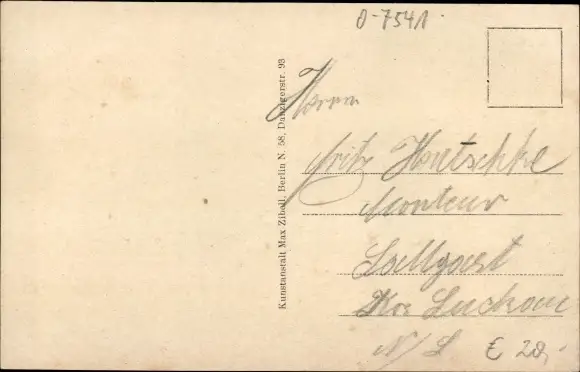 o-7541
Kunstanstalt Max Zibell, Berlin N. 58, Danzigerstr. 93
Herrn
Fritz Hentschke
Monteur
Sallgast
Kr. Luckau
N/L
€ 20,-